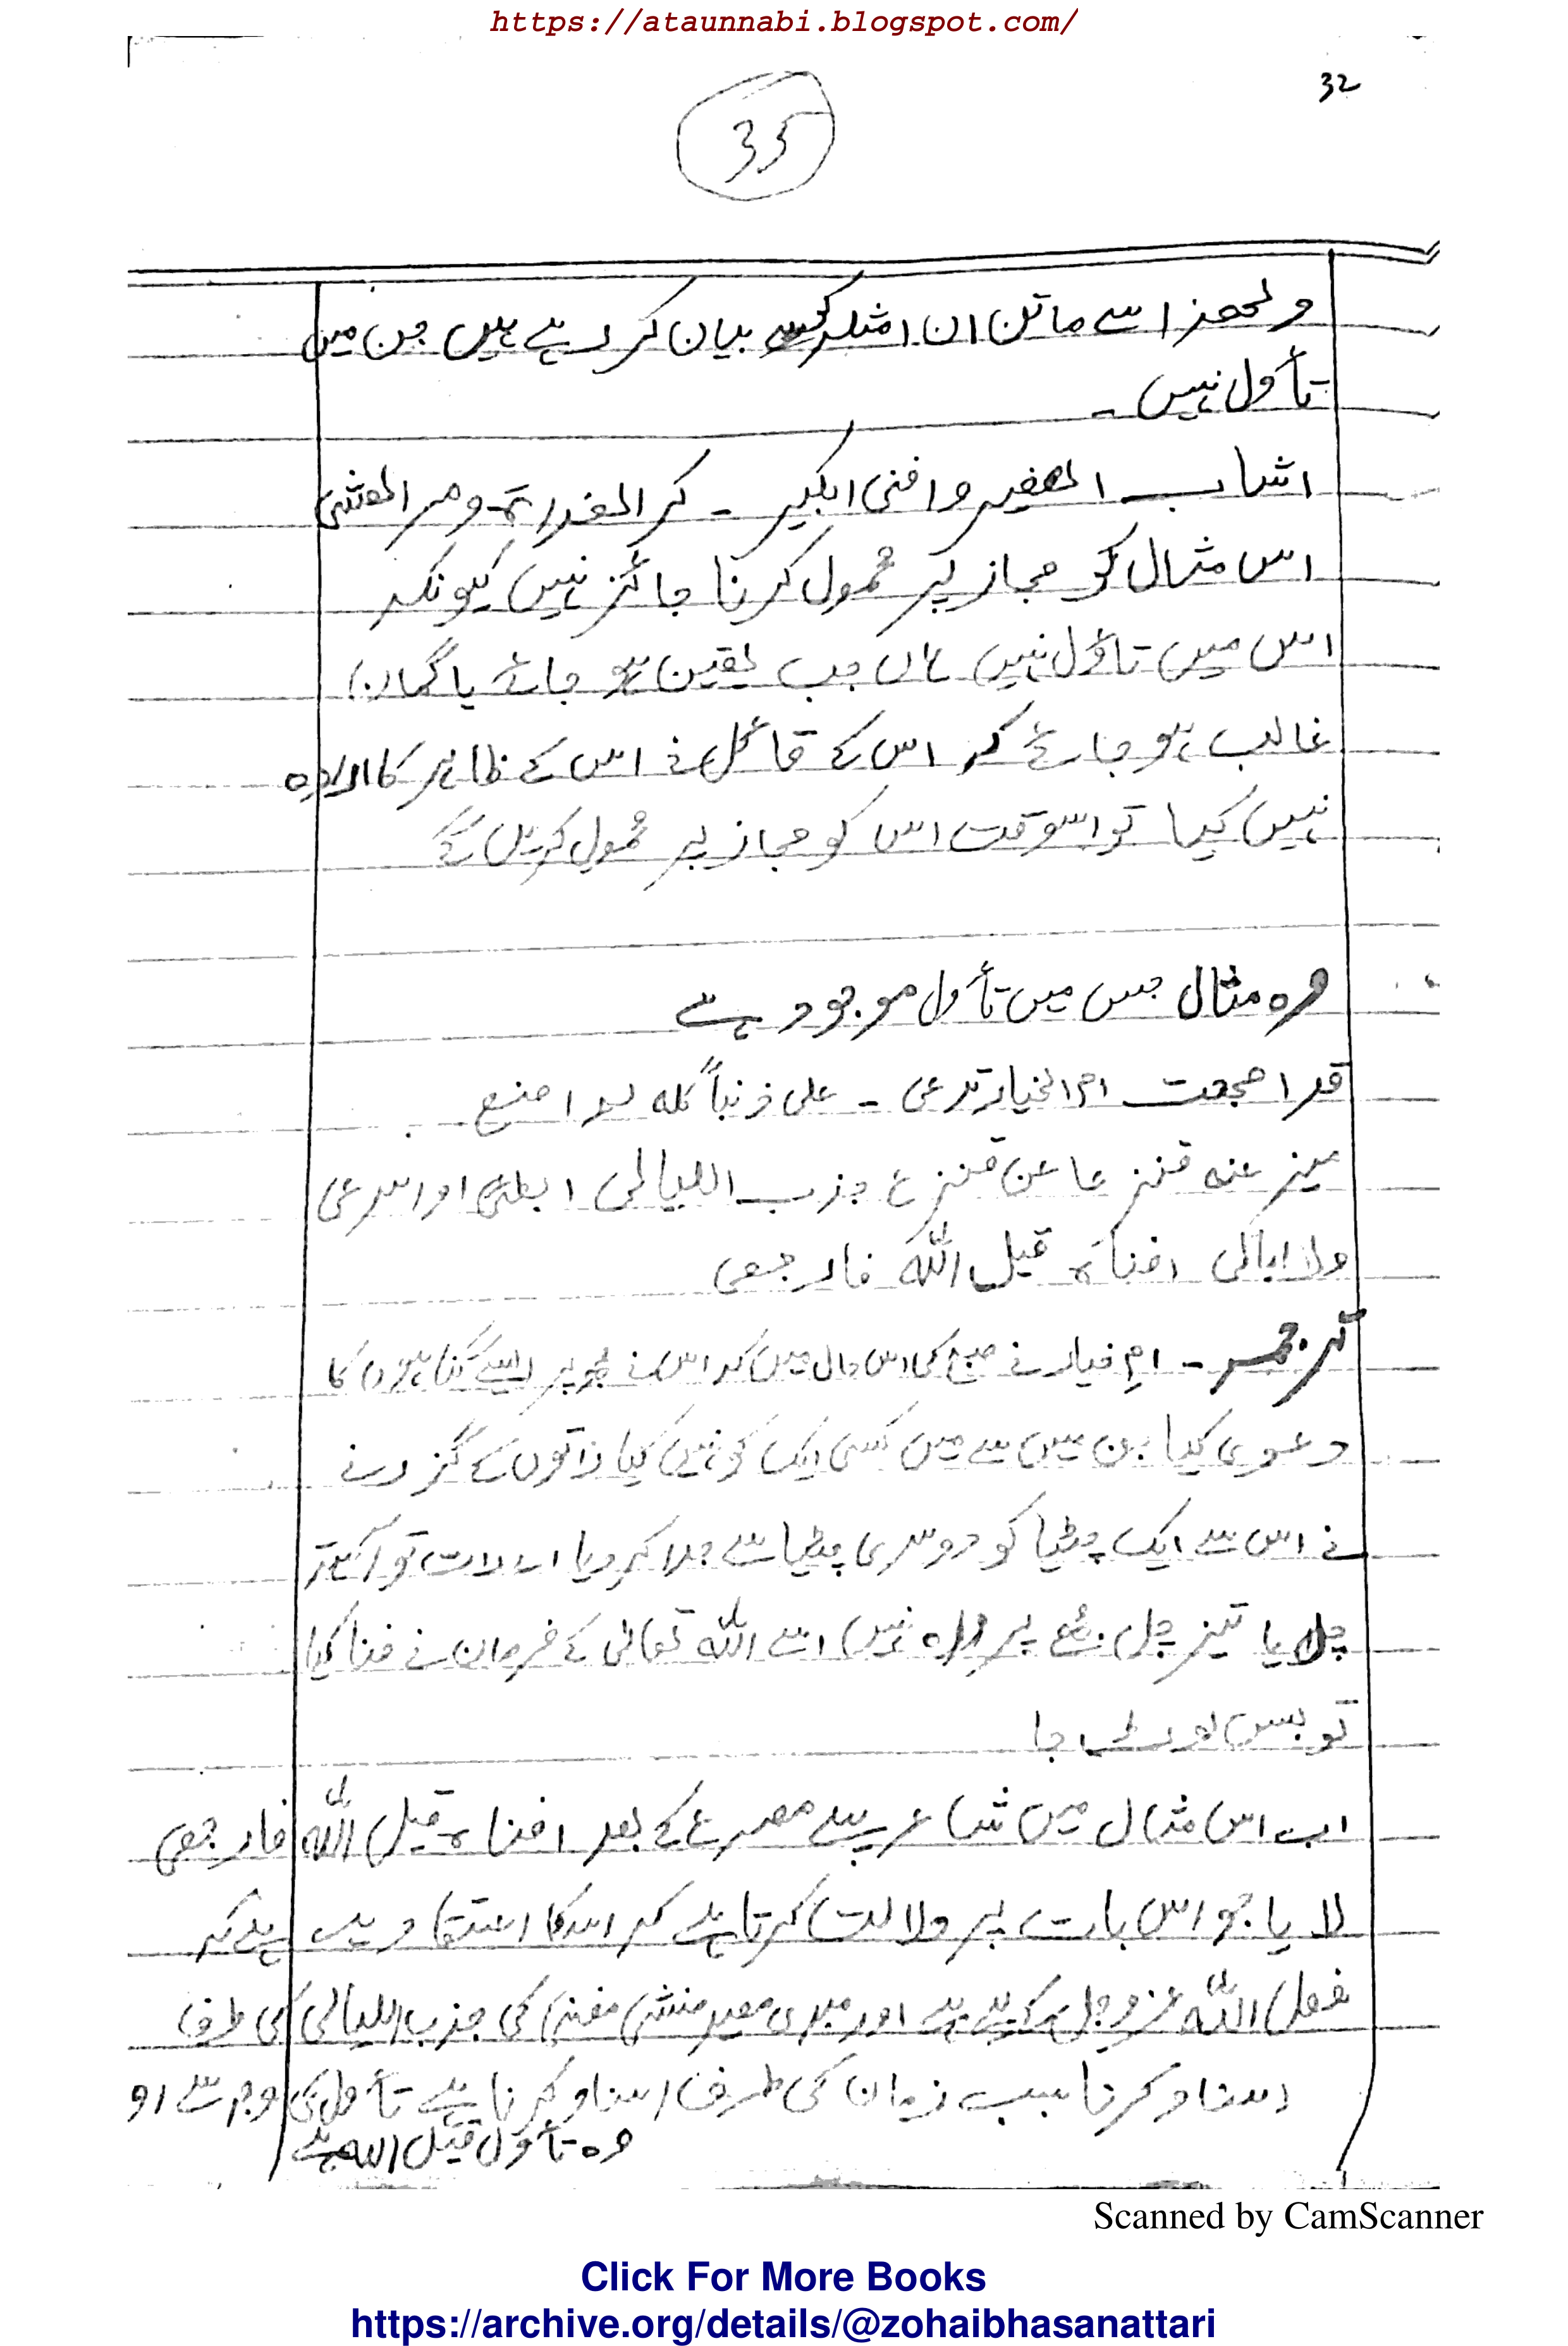 https://ataunnabi.blogspot.com/
32
35
ولھذا سے ماتن ان امثلہ کو بیان کر رہے ہیں جن میں
تأول نہیں ۔
اشاب الصغیر وافنی الکبیر ۔ کر الغداۃ ومر العشی
اس مثال کو مجاز پر محمول کرنا جائز نہیں کیونکہ
اس میں تاؤل نہیں ہاں جب یقین ہو جائے یا گمان
غالب ہو جائے کہ اس کے قائل نے اس کے ظاہر کا ارادہ
نہیں کیا تو اسوقت اس کو مجاز پر محمول کریں گے
وہ مثال جس میں تأول موجود ہے
قد اصبحت ام الخیار تدعی ۔ علی ذنباً کلہ لم اصنع
میز عنہ قنزعا عن قنزع جذب اللیالی ابطئی او اسرعی
ولا ابالی افناہ قیل اللہ فارجعی
ترجمہ ۔ ام خیار نے صبح کی اس حال میں کہ اس نے مجھ پر ایسے گناہوں کا
دعوی کیا جن میں سے میں کسی ایک کو نہیں کیا راتوں کے گزرنے
نے اس سے ایک چٹیا کو دوسری چٹیا سے جدا کر دیا اے رات تو آہستہ
چل یا تیز چل مجھے پرواہ نہیں اسے اللہ تعالی کے فرمان نے فنا کیا
تو بس لوٹ جا
اب اس مثال میں شاعر پہلے مصرع کے بعد افناہ قیل اللہ فارجعی
لایا جو اس بات پر دلالت کرتا ہے کہ اسکا اعتقاد یہ ہے کہ
فعل اللہ عزوجل کیلئے ہے اور مبدی معید منشی مفنی کی جذب اللیالی کی طرف
اسناد کرنا سبب زمان کی طرف اسناد کرنا ہے تأول کی وجہ سے او
وہ تأول قیل اللہ ہے
Scanned by CamScanner
Click For More Books
https://archive.org/details/@zohaibhasanattari